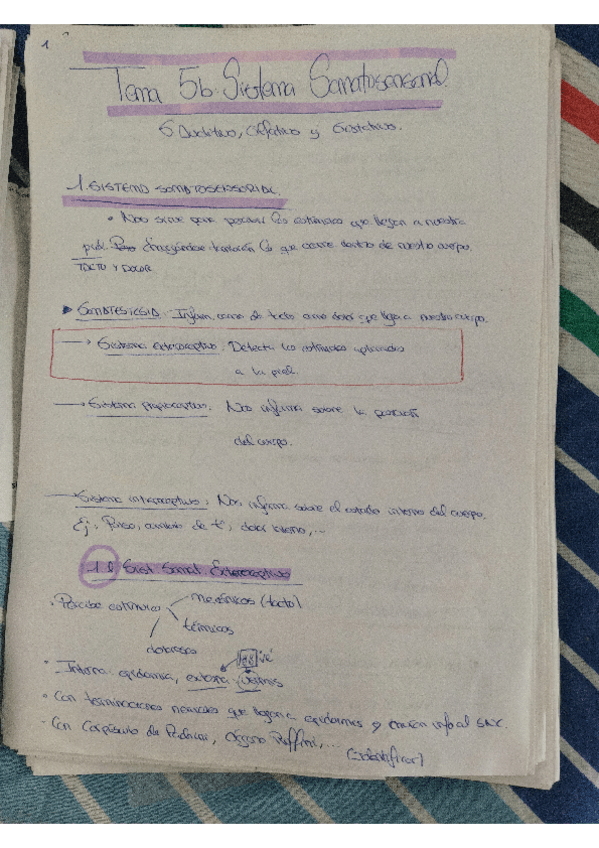 1
Tema 5b. Sistema Somatosensorial.
Auditivo, Olfativo y Gustativo.
1. SISTEMA SOMATOSENSORIAL.
• Nos sirve para percibir los estímulos que llegan a nuestra
piel. también lo que ocurre dentro de nuestro cuerpo.
TACTO Y DOLOR
SOMATESTESIA. Informaciones de tacto como dolor que llega a nuestro cuerpo.
→ Sistema exteroceptivo. Detecta los estímulos aplicados
a la piel.
Sistema propioceptivo. Nos informa sobre la posición
del cuerpo.
Sistema interoceptivo: Nos informa sobre el estado interno del cuerpo.
Ej: cambio de tª, dolor interno,...
Sist Somat. Exteroceptivo
• Percibe estímulos
mecánicos (tacto)
térmicos
dolorosos
epidermis, externa
• Con terminaciones nerviosas que llegan a epidermis y envían info al SNC.
- Con Corpúsculo de Pacini, Órgano Ruffini,...